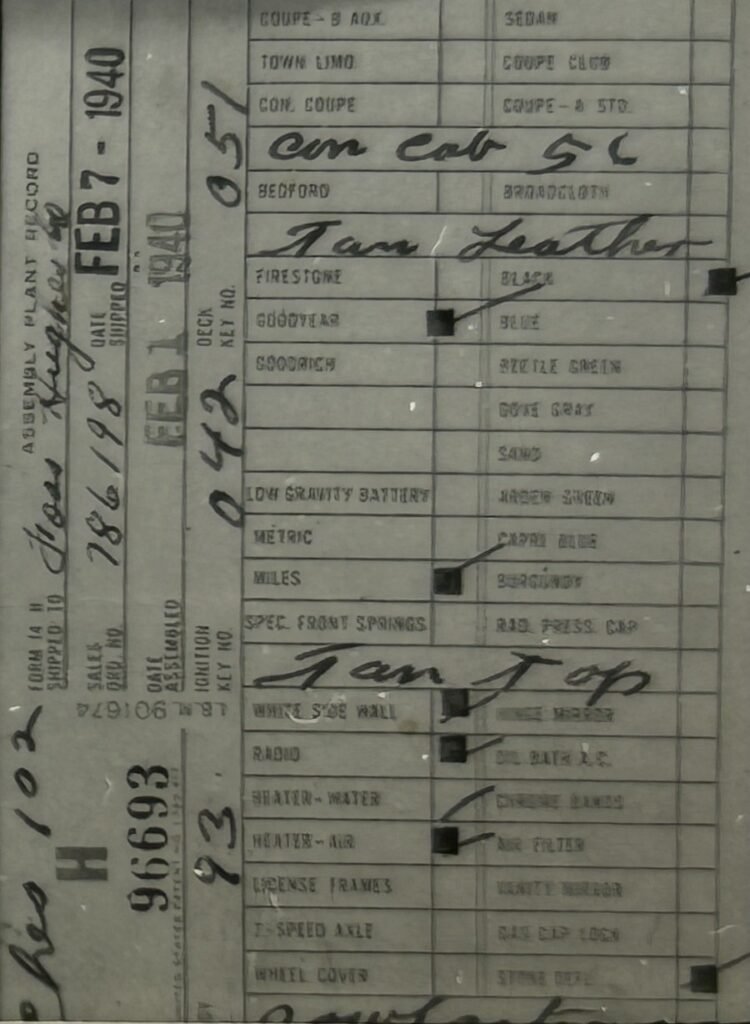 COUPE-B AUX. SEDAN
TOWN LIMO COUPE CLUB
CON. COUPE COUPE-A STD.
Con Cab 56
BEDFORD BROADCLOTH
Tan Leather
FIRESTONE BLACK
GOODYEAR BLUE
GOODRICH BEETLE GREEN
DOVE GRAY
SAND
LOW GRAVITY BATTERY ARDEN GREEN
METRIC CAPRI BLUE
MILES BURGUNDY
SPEC. FRONT SPRINGS RAD. PRESS. CAP
Tan Top
WHITE SIDE WALL HINGE MIRROR
RADIO OIL BATH A.C.
HEATER-WATER CHROME BANDS
HEATER-AIR AIR FILTER
LICENSE FRAMES VANITY MIRROR
2-SPEED AXLE GAS CAP LOCK
WHEEL COVER
ASSEMBLY PLANT RECORD
FORM 14 H
SHIPPED TO Foss Hughes
SALES ORD. NO 786198 DATE SHIPPED FEB 7 - 1940
DATE ASSEMBLED FEB 1 1940
IGNITION KEY NO. 042 DECK KEY NO. 051
102
H
96693
93
901674